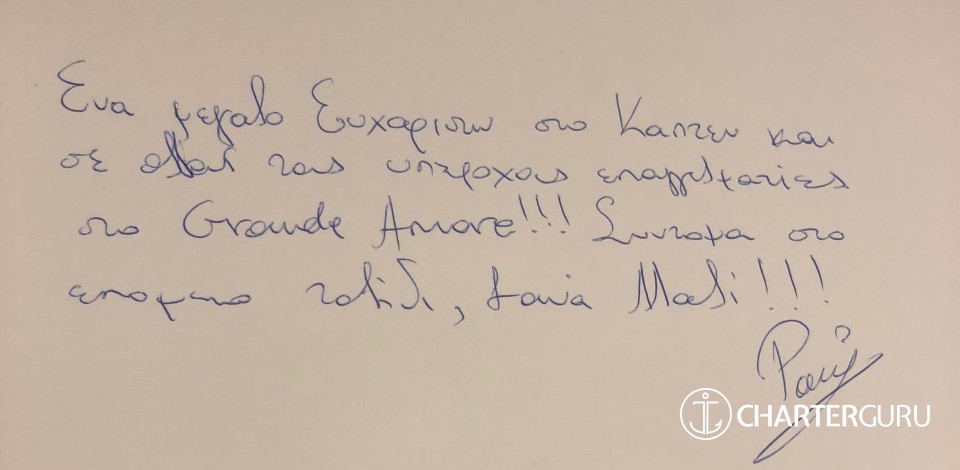 Ενα μεγαλο Ευχαριστω στο Καπτεν και
σε ολους τους υπεροχους επαγγελματιες
στο Grande Amore!!! Συντομα στο
επομενο ταξιδι, ξανα Μαζι!!!
CHARTERGURU